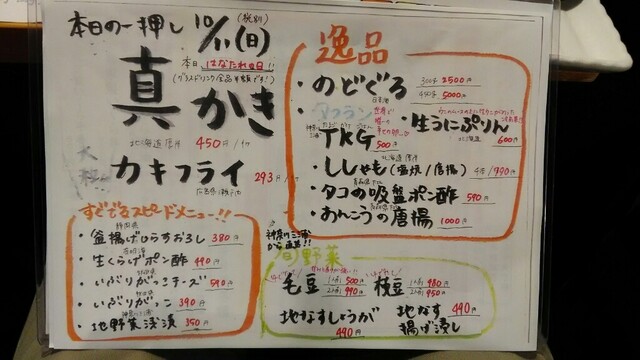 本日の一押し
10/11(日)
(税別)
本日 はなたれの日!!
真かき
北海道 厚岸 450円/1ケ
大粒
カキフライ
広島県 293円/1ケ
すぐでるスピードメニュー!!
静岡県
・釜揚げしらすおろし 380円
・生くらげポン酢 490円
秋田県
・いぶりがっこチーズ 590円
・いぶりがっこ 390円
神奈川県
・地野菜浅漬 350円
逸品
・のどぐろ 300g 2500円
450g 5000円
・アフラン
TKG 500円
・生うにぷりん
北海道 600円
北海道
・ししゃも(塩焼/唐揚) 4本/990円
青森県
・タコの吸盤ポン酢 590円
・あんこうの唐揚 1000円
神奈川三浦から直送!!
旬野菜
毛豆 500円 990円
枝豆 480円 950円
地なすしょうが 490円
地なす揚げ浸し 490円